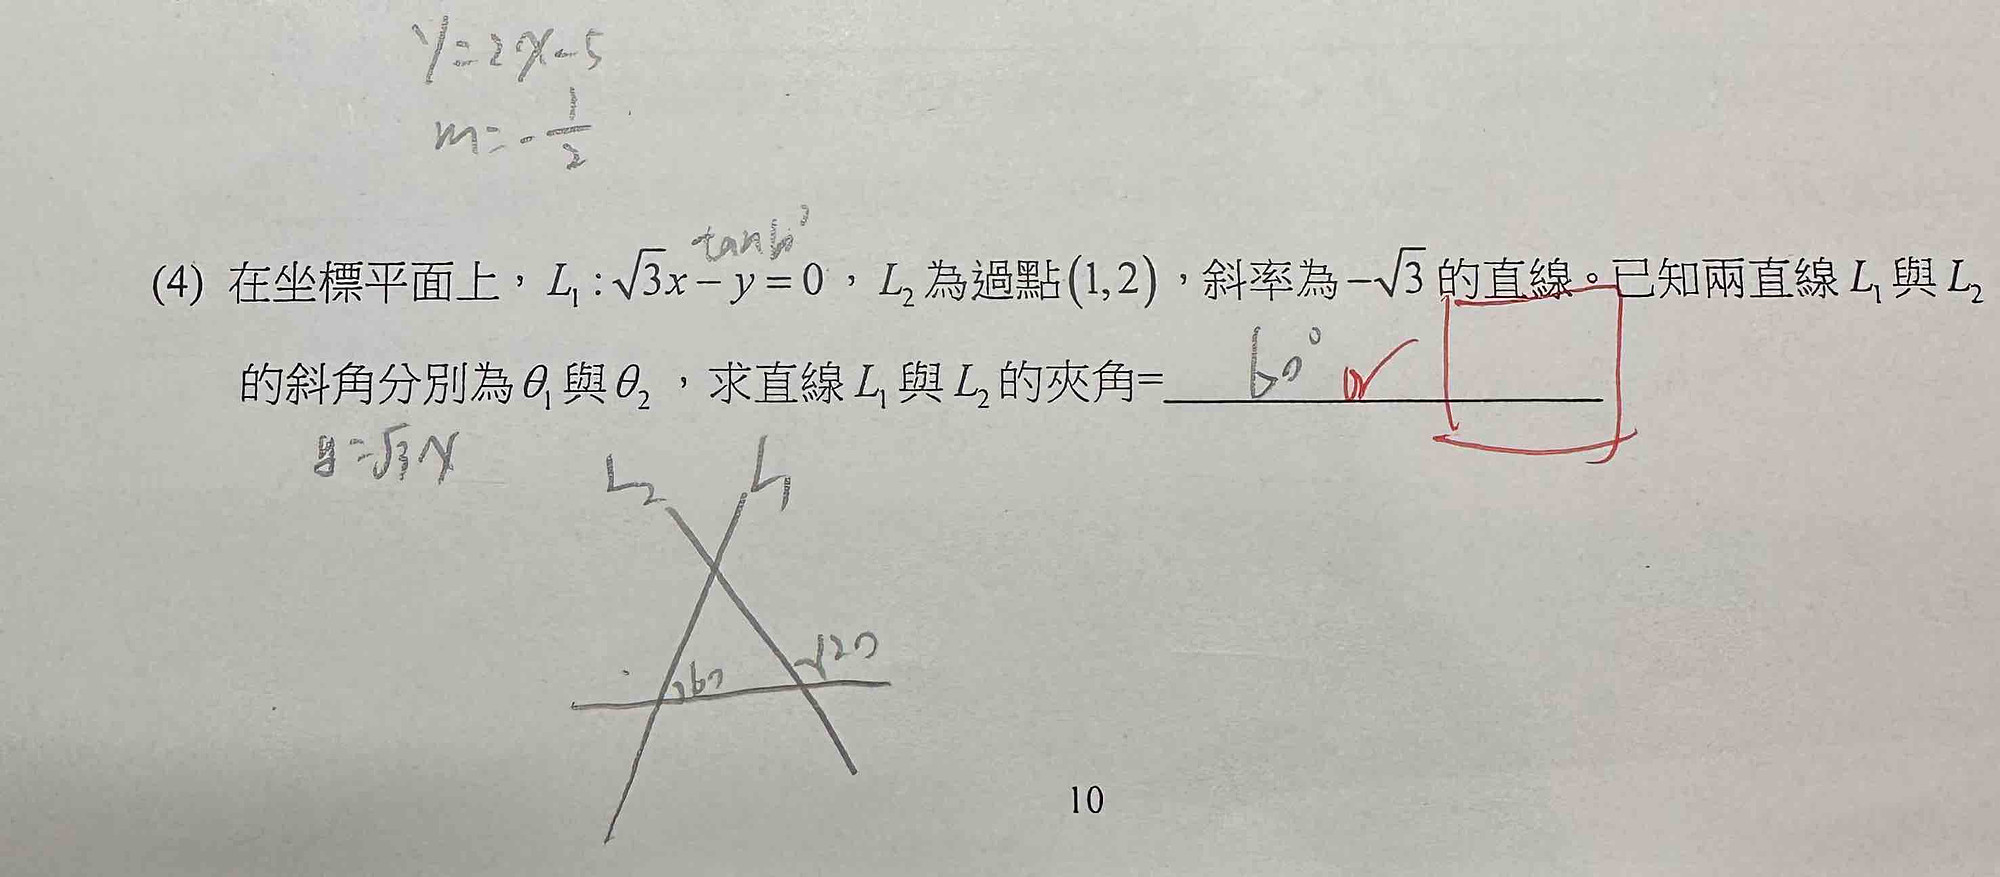 y=2x-5
m=-1/2
tan60°
(4) 在坐標平面上，L₁:√3x-y=0，L₂為過點(1,2)，斜率為-√3的直線。已知兩直線L₁與L₂
的斜角分別為θ₁與θ₂，求直線L₁與L₂的夾角= 60°
y=√3x
L₂ L₁
60 120
10